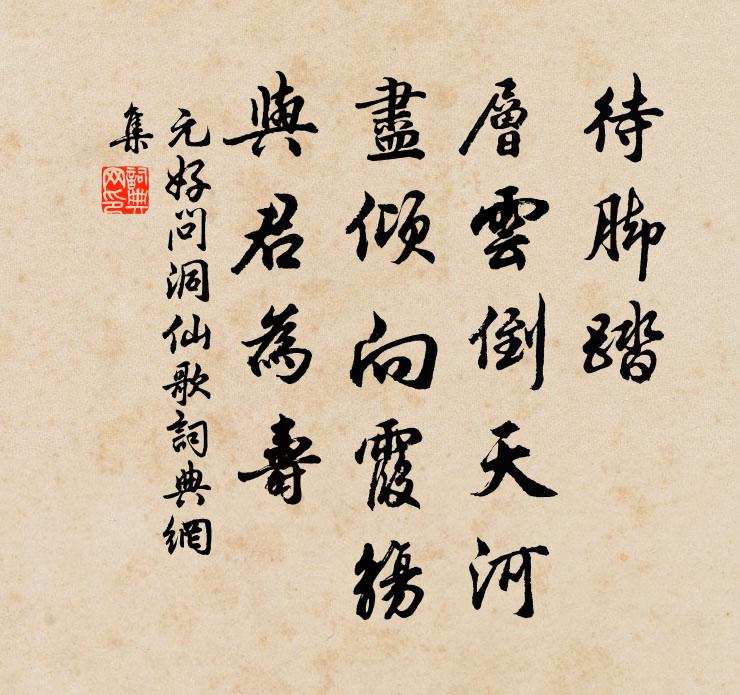 待脚踏
層雲倒天河
盡傾向霞觴
與君為壽
元好问洞仙歌詞典網
集
詞典網印